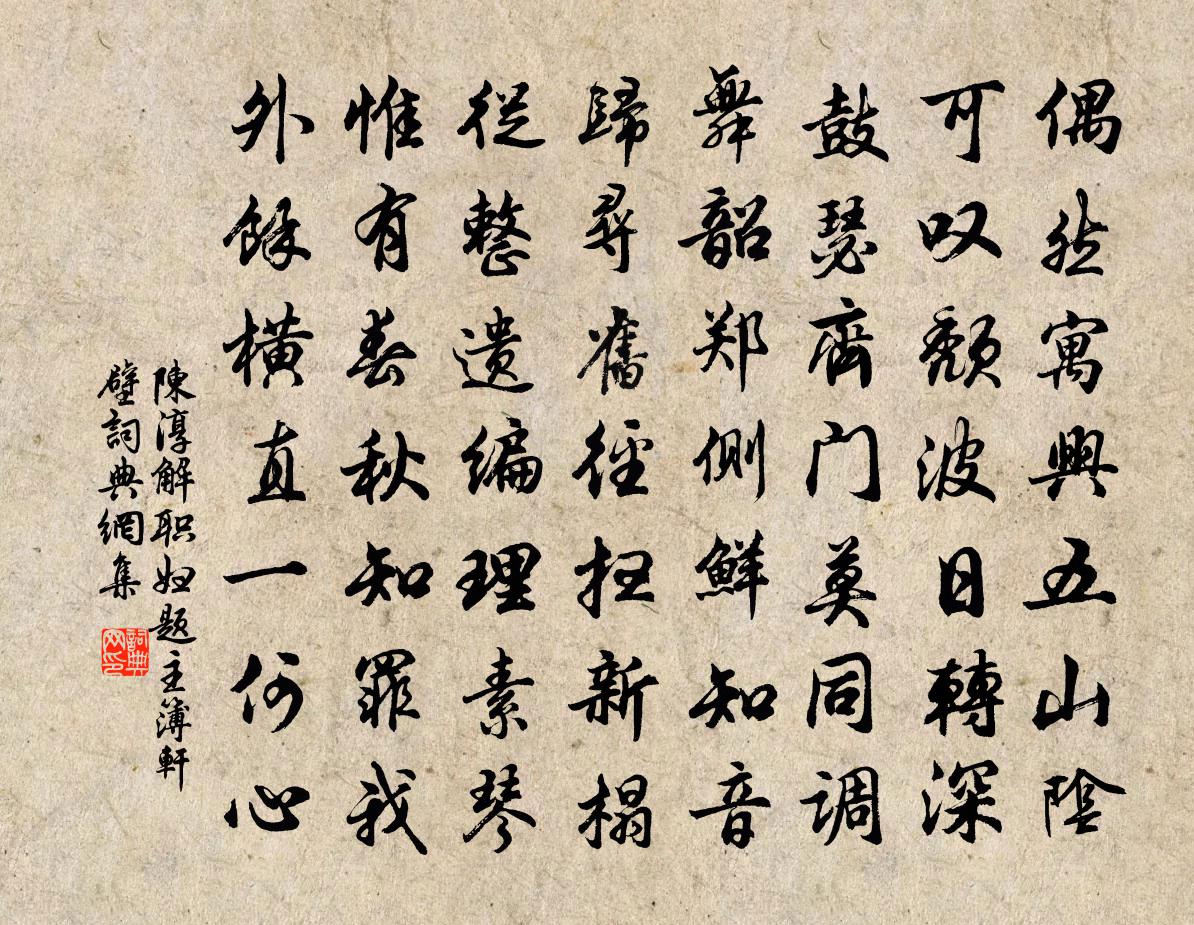 偶然寓興五山陰
可叹颓波日轉深
鼓瑟齊门莫同调
舞韶郑侧鮮知音
歸尋舊徑扫新榻
從整遗编理素琴
惟有春秋知罪我
外餘橫直一何心
陳淳解职归题主簿軒
壁詞典網集
詞典网印